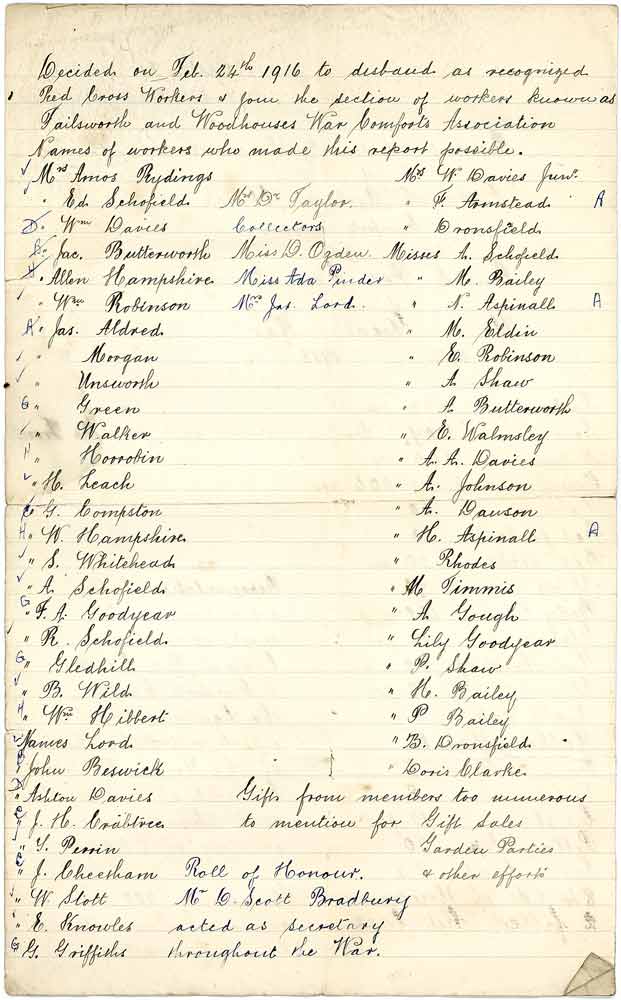 Decided on Feb. 24th 1916 to disband as recognized
Red Cross Workers & join the section of workers known as
Failsworth and Woodhouses War Comforts Association
Names of workers who made this report possible.
Mrs Amos Rydings Mrs W. Davies Junr.
" Ed Schofield Mrs Dr Taylor. " F. Armstead A
D. " Wm Davies Collectors " Dronsfield
" Jac. Butterworth Miss D. Ogden. Misses A. Schofield
H " Allen Hampshire Miss Ada Pinder " M. Bailey
" Wm Robinson Mrs Jas. Lord. " N. Aspinall A
A " Jas. Aldred " M. Eldin
" Morgan " E. Robinson
" Unsworth " A Shaw
G " Green " A Butterworth
" Walker " E. Walmsley
H " Horrobin " A. A. Davies
" H. Leach " A. Johnson
C " G. Compston " A. Dawson
H " W. Hampshire " H. Aspinall A
" S. Whitehead " Rhodes
" A Schofield " M Timmis
G " F. A. Goodyear " A Gough
" R. Schofield " Lily Goodyear
G " Gledhill " P. Shaw
" B. Wild " H. Bailey
H " Wm Hibbert " P Bailey
" James Lord " B. Dronsfield
B " John Beswick " Doris Clarke
D " Ashton Davies Gifts from members too numerous
C " J. H. Crabtree to mention for Gift Sales
" T. Perrin Garden Parties
C " J. Cheetham Roll of Honour. & other efforts
" W Stott Mr D. Scott Bradbury
" E. Knowles acted as secretary
G " G. Griffiths throughout the War.